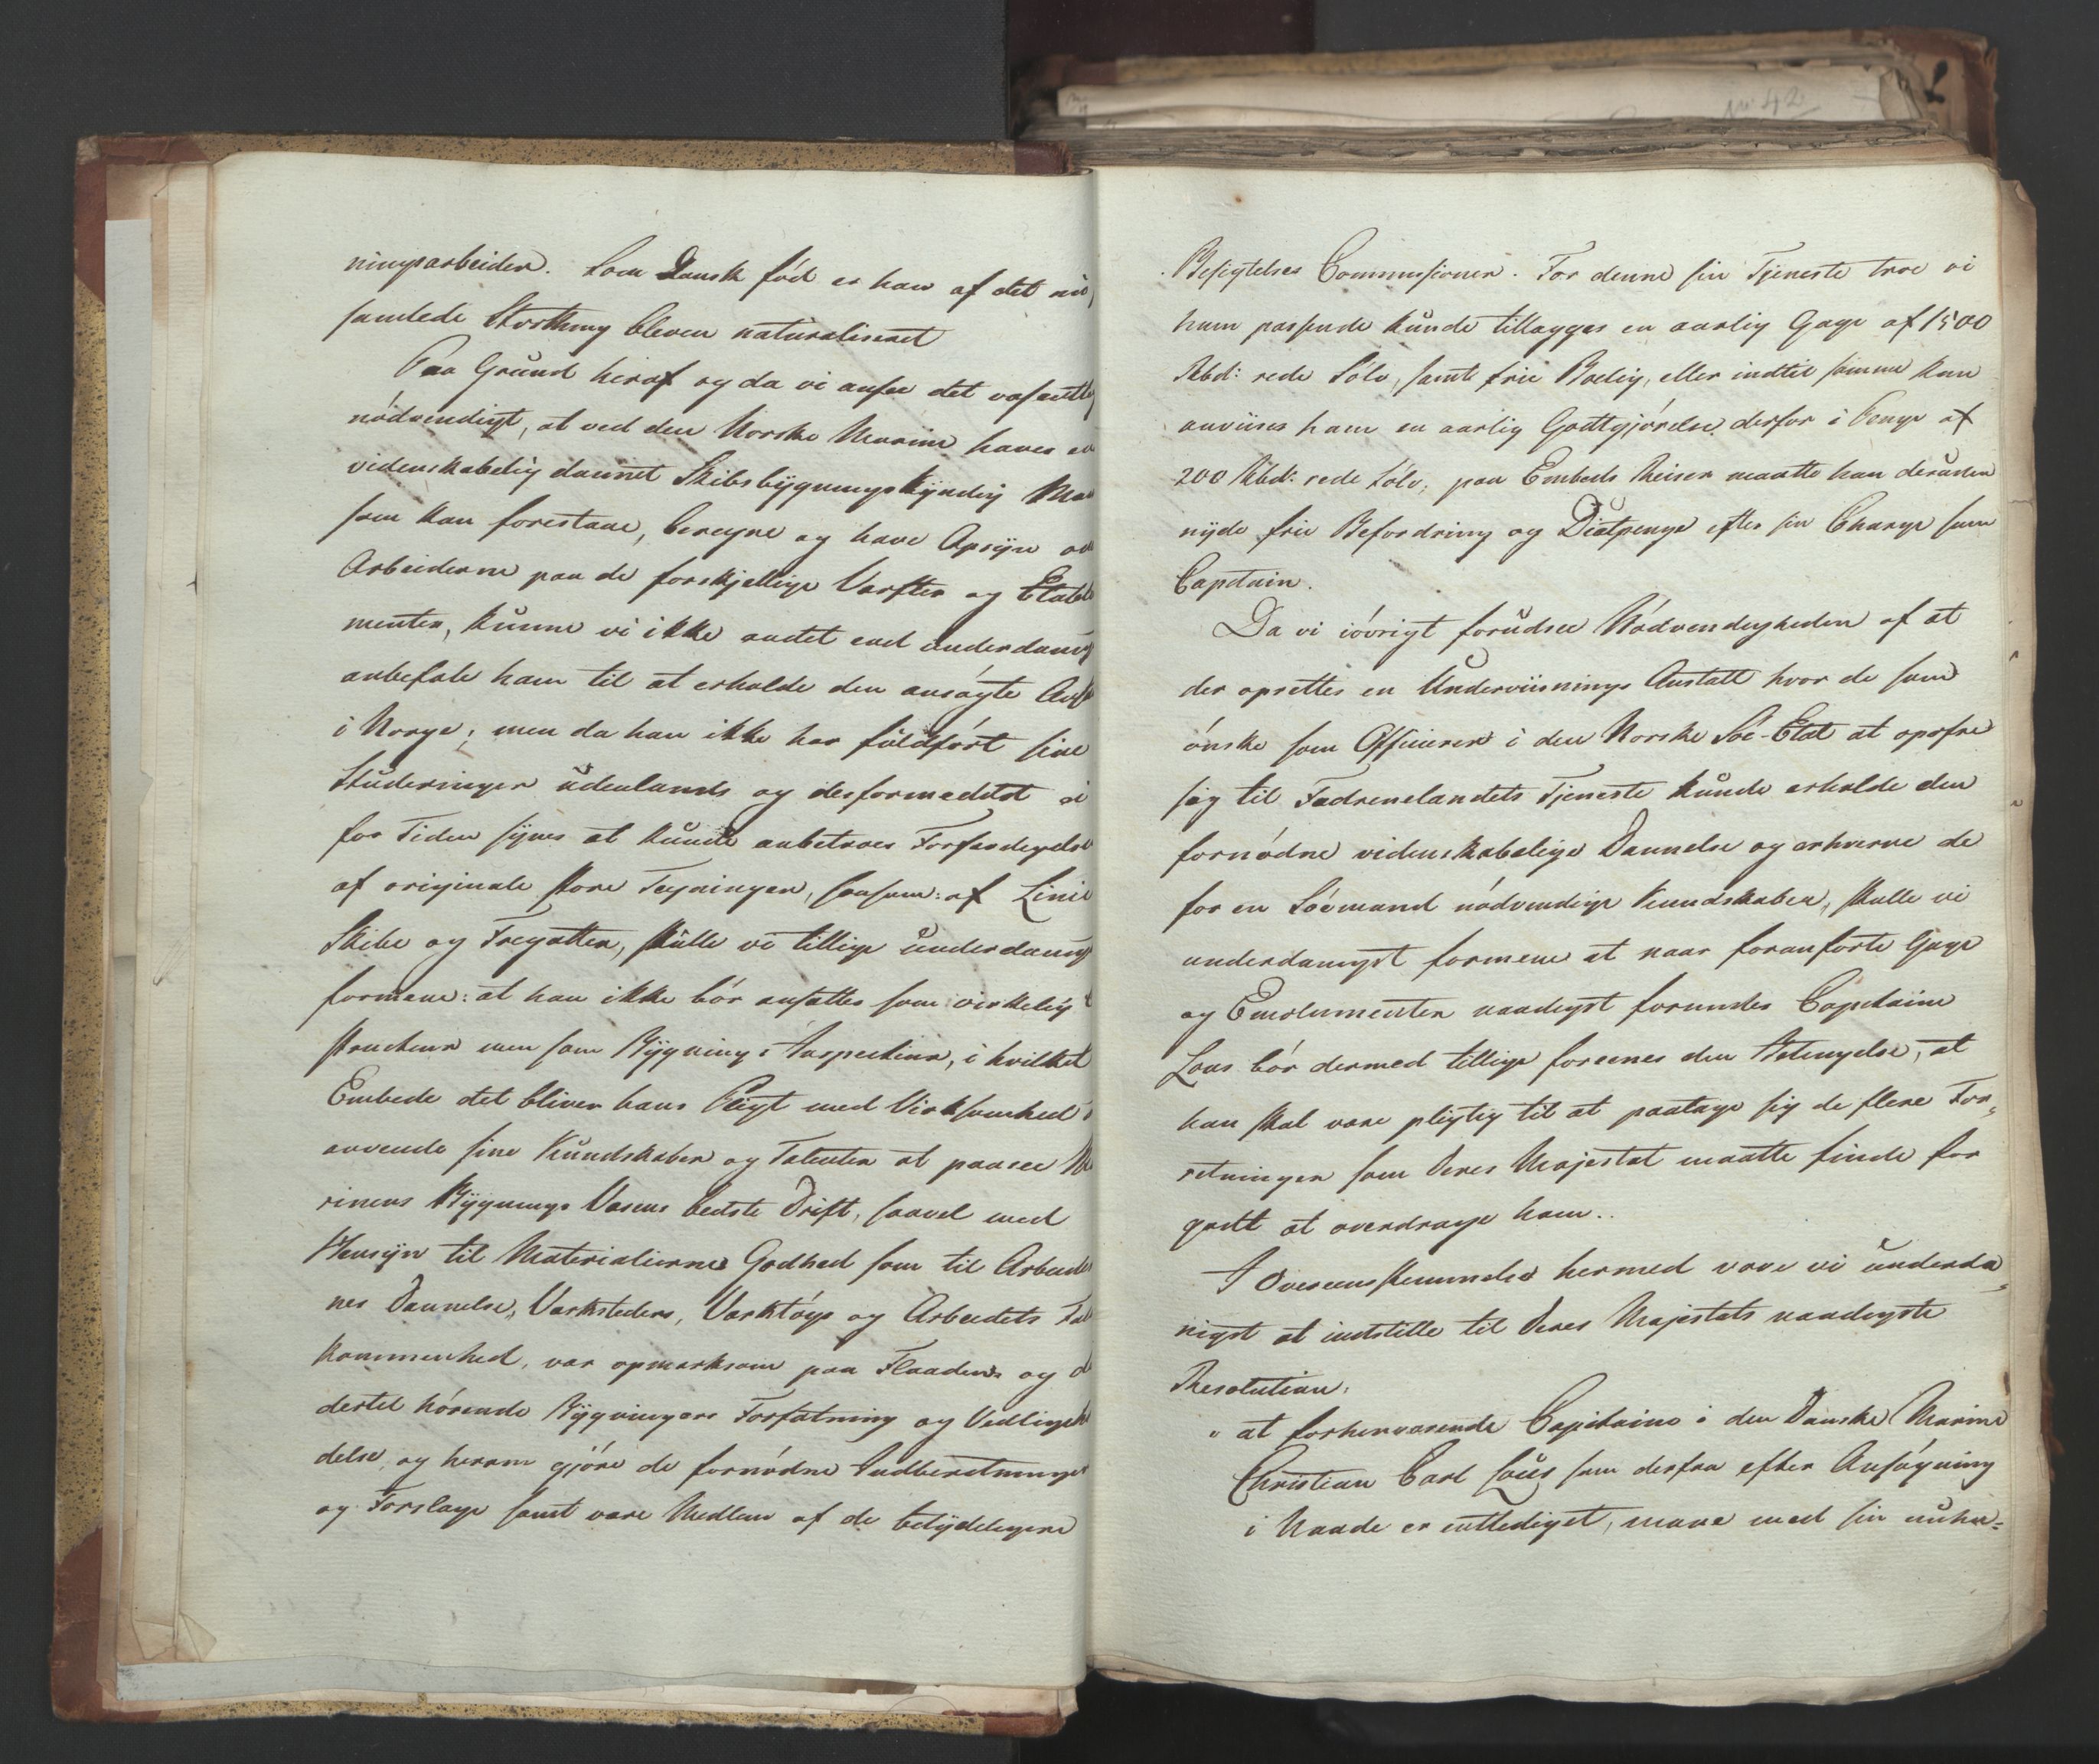 No 42
ningsarbeider. Som Dansk föd er han af det nu
samlede Storthing bleven naturaliseret
Paa Grund heraf og da vi ansee det væsentlig
nödvendigt, at ved den Norske Marine haves en
videnskabelig dannet Skibsbygningskyndig Ma
som kan forestaae, beregne og have Opsyn ov
Arbeiderne paa de forskjellige Værfter og Etablis
menter, kunne vi ikke andet end underdanig
anbefale ham til at erholde den ansögte Ans
i Norge; men da han ikke har fuldfört sine
Studeringer udenlands og desformedelst ei
for Tiden synes at kunde anbetroes Forfærdigelse
af originale store Tegninger, saasom: af Linie
Skibe og Fregatter, skulle vi tillige underdanigst
formene: at han ikke bör ansættes som virkelig
structeur men som Bygnings Inspecteur, i hvilket
Embede det bliver hans Pligt med Virksomhed
anvende sine Kundskaber og Talenter at paasee Ma
rinens Bygnings Væsens bedste Drift, saavel med
Hensyn til Materialiernes Godhed som til Arbeider
nes Dannelse, Værksteders, Værktöys og Arbeidets Ful
kommenhed, vær opmærksom paa Flaadens og d
dertil hörende Bygningers Forfatning og Vedligehol
delse, og herom gjöre de fornödne Indberetninger
og Forslage samt være Medlem af de betydeligere
Besigtelses Commissioner. For denne sin Tjeneste troe vi
ham passende kunde tillægges en aarlig Gage af 1500
Rbd: rede Sölv, samt frie Boelig, eller indtil samme kan
anviises ham en aarlig Godtgjörelse derfor i Penge af
200 Rbd: rede Sölv, paa Embeds Reiser maatte han desuden
nyde frie Befordring og Diætpenge efter sin Charge som
Capitain.
Da vi iövrigt forudsee Nödvendigheden af at
der oprettes en Underviisnings Anstalt hvor de som
önske som Officierer i den Norske Söe-Etat at opofre
sig til Fædrenelandets Tjeneste kunde erholde den
fornödne videnskabelige Dannelse og erhverve de
for en Söemand nödvendige Kundskaber, skulle vi
underdanigst formene at naar foranförte Gage
og Emolumenter naadigst forundes Capitaine
Lous bör dermed tillige foreenes den Betingelse, at
han skal være pligtig til at paatage sig de flere For-
retninger som Deres Majestæt maatte finde for
godt at overdrage ham..
I Overeensstemmelse hermed vove vi underda-
nigst at indstille til Deres Majestæts naadigste
Resolution:
" at forhenværende Capitaine i den Danske Marine
Christian Carl Lous som derfra efter Ansögning
i Naade er entlediget, maae med sin nuhæ=